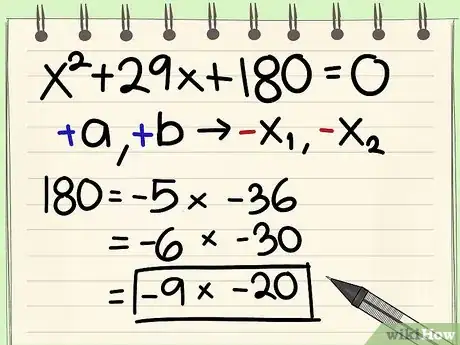 x²+29x+180=0
+a,+b→-x₁,-x₂
180=-5 x -36
=-6 x -30
=-9 x -20
wikiHow